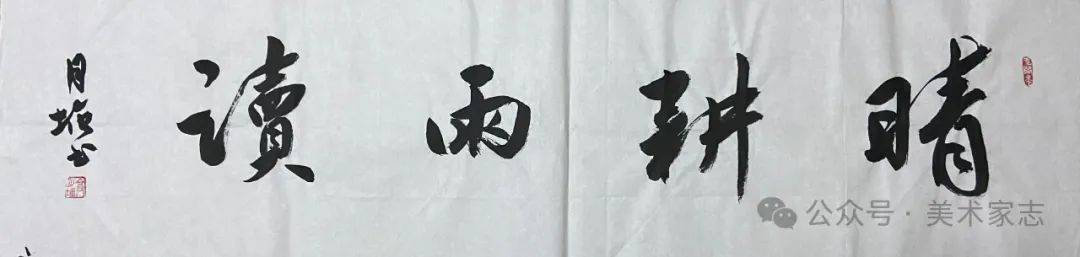 晴耕雨讀
月塏书
公众号·美术家志